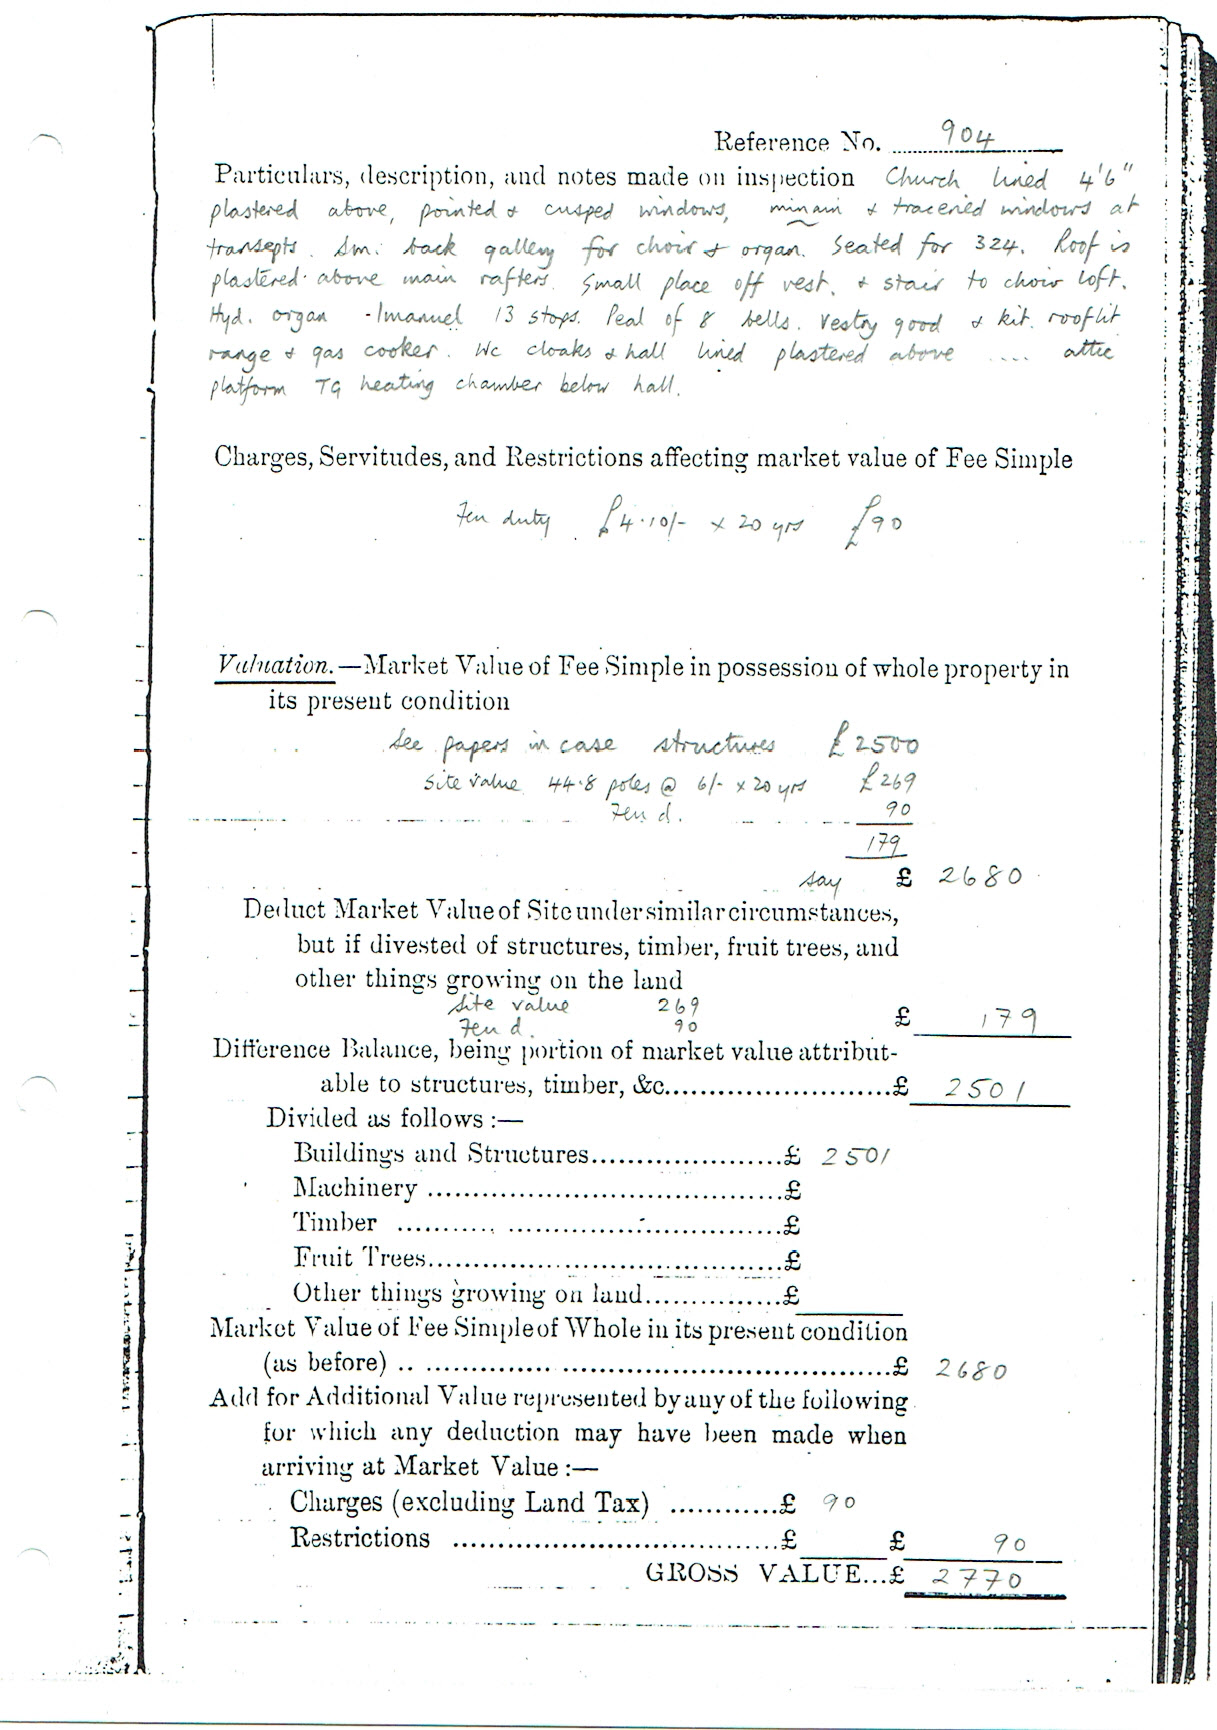 Reference No. 904
Particulars, description, and notes made on inspection Church lined 4'6"
plastered above, pointed & cusped windows, & tracened windows at
transepts. Sm. back gallery for choir & organ. Seated for 324. Roof is
plastered above main rafters. Small place off vest. & stair to choir loft.
Hyd. organ - Imanuel 13 stops. Peal of 8 bells. Vestry good & kit. rooflit
range & gas cooker. Wc cloaks & hall lined plastered above .... attic
platform TG heating chamber below hall.
Charges, Servitudes, and Restrictions affecting market value of Fee Simple
Feu duty £4.10/- x 20 yrs £90
Valuation.—Market Value of Fee Simple in possession of whole property in
its present condition
See papers in case structures £2500
Site value 44.8 poles @ 6/- x 20 yrs £269
Feu d. 90
179
say £ 2680
Deduct Market Value of Site under similar circumstances,
but if divested of structures, timber, fruit trees, and
other things growing on the land
Site value 269
Feu d. 90 £ 179
Difference Balance, being portion of market value attribut-
able to structures, timber, &c..........................£ 2501
Divided as follows :—
Buildings and Structures.....................£ 2501
Machinery .......................................£
Timber .......................................£
Fruit Trees.......................................£
Other things growing on land...............£
Market Value of Fee Simple of Whole in its present condition
(as before) .. ................................................£ 2680
Add for Additional Value represented by any of the following
for which any deduction may have been made when
arriving at Market Value :—
Charges (excluding Land Tax) ............£ 90
Restrictions ....................................£ £ 90
GROSS VALUE...£ 2770